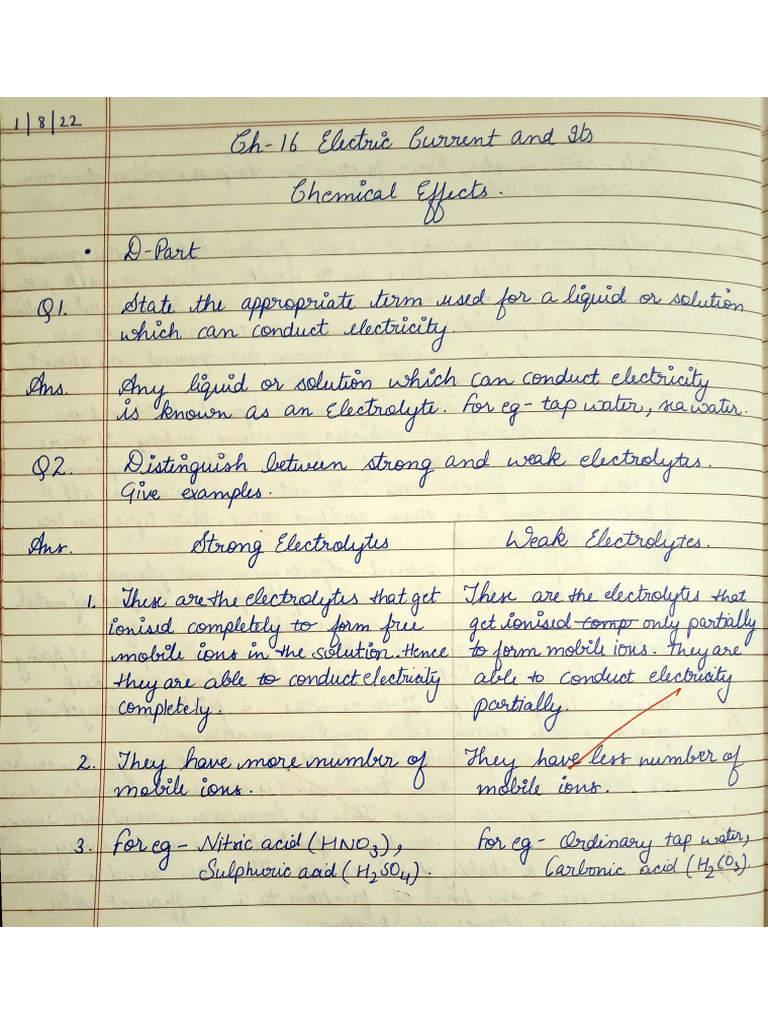 1/8/22
Ch-16 Electric Current and Its
Chemical Effects.
• D-Part
Q1. State the appropriate term used for a liquid or solution
which can conduct electricity.
Ans. Any liquid or solution which can conduct electricity
is known as an Electrolyte. For eg - tap water, sea water.
Q2. Distinguish between strong and weak electrolytes.
Give examples.
Ans. Strong Electrolytes
1. These are the electrolytes that get
ionised completely to form free
mobile ions in the solution. Hence
they are able to conduct electricity
completely.
2. They have more number of
mobile ions.
3. For eg - Nitric acid (HNO3),
Sulphuric acid (H2SO4).
Weak Electrolytes.
These are the electrolytes that
get ionised comp only partially
to form mobile ions. They are
able to conduct electricity
partially.
They have less number of
mobile ions.
For eg - Ordinary tap water,
Carbonic acid (H2CO3).